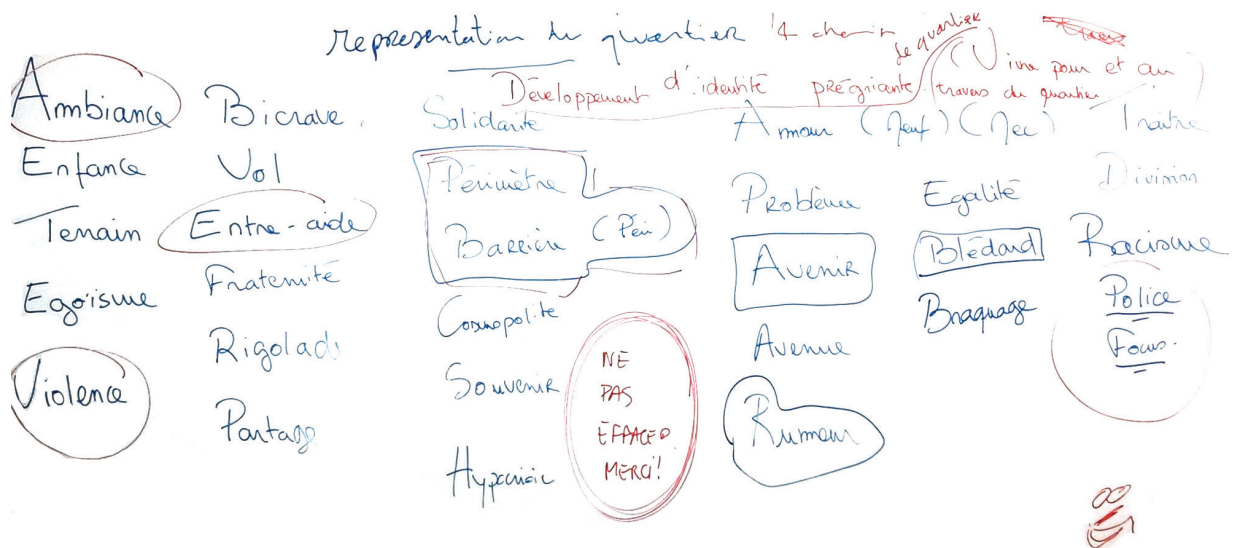 representation du quartier 4 chemin
le quartier
Développement d'identité prégnante (Vivre pour et au
travers du quartier
Ambiance
Enfance
Terrain
Egoisme
Violence
Bicrave
Vol
Entre-aide
Fraternité
Rigolade
Partage
Solidarité
Périmètre
Barrière (Péri)
Cosmopolite
Souvenir
Hypocrisie
NE
PAS
EFFACER
MERCI!
Amour (Meuf) (Mec)
Problème
Avenir
Avenue
Rumeur
Egalité
Blédard
Braquage
Traitre
Division
Racisme
Police
Focus.